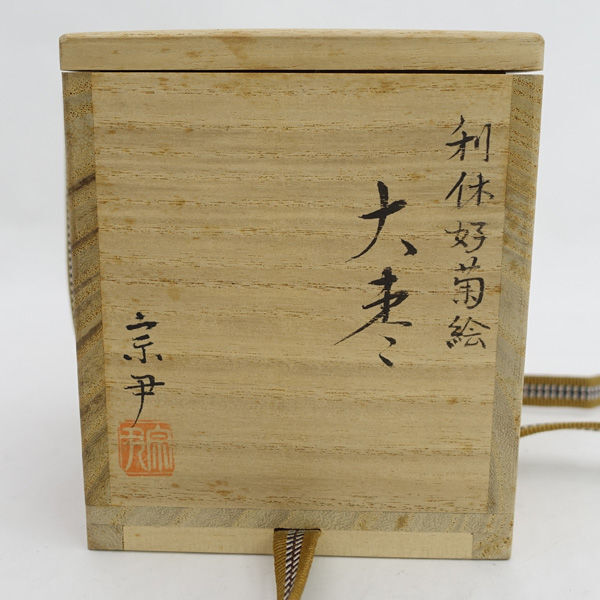 利休好菊絵
大棗
宗尹
宗尹